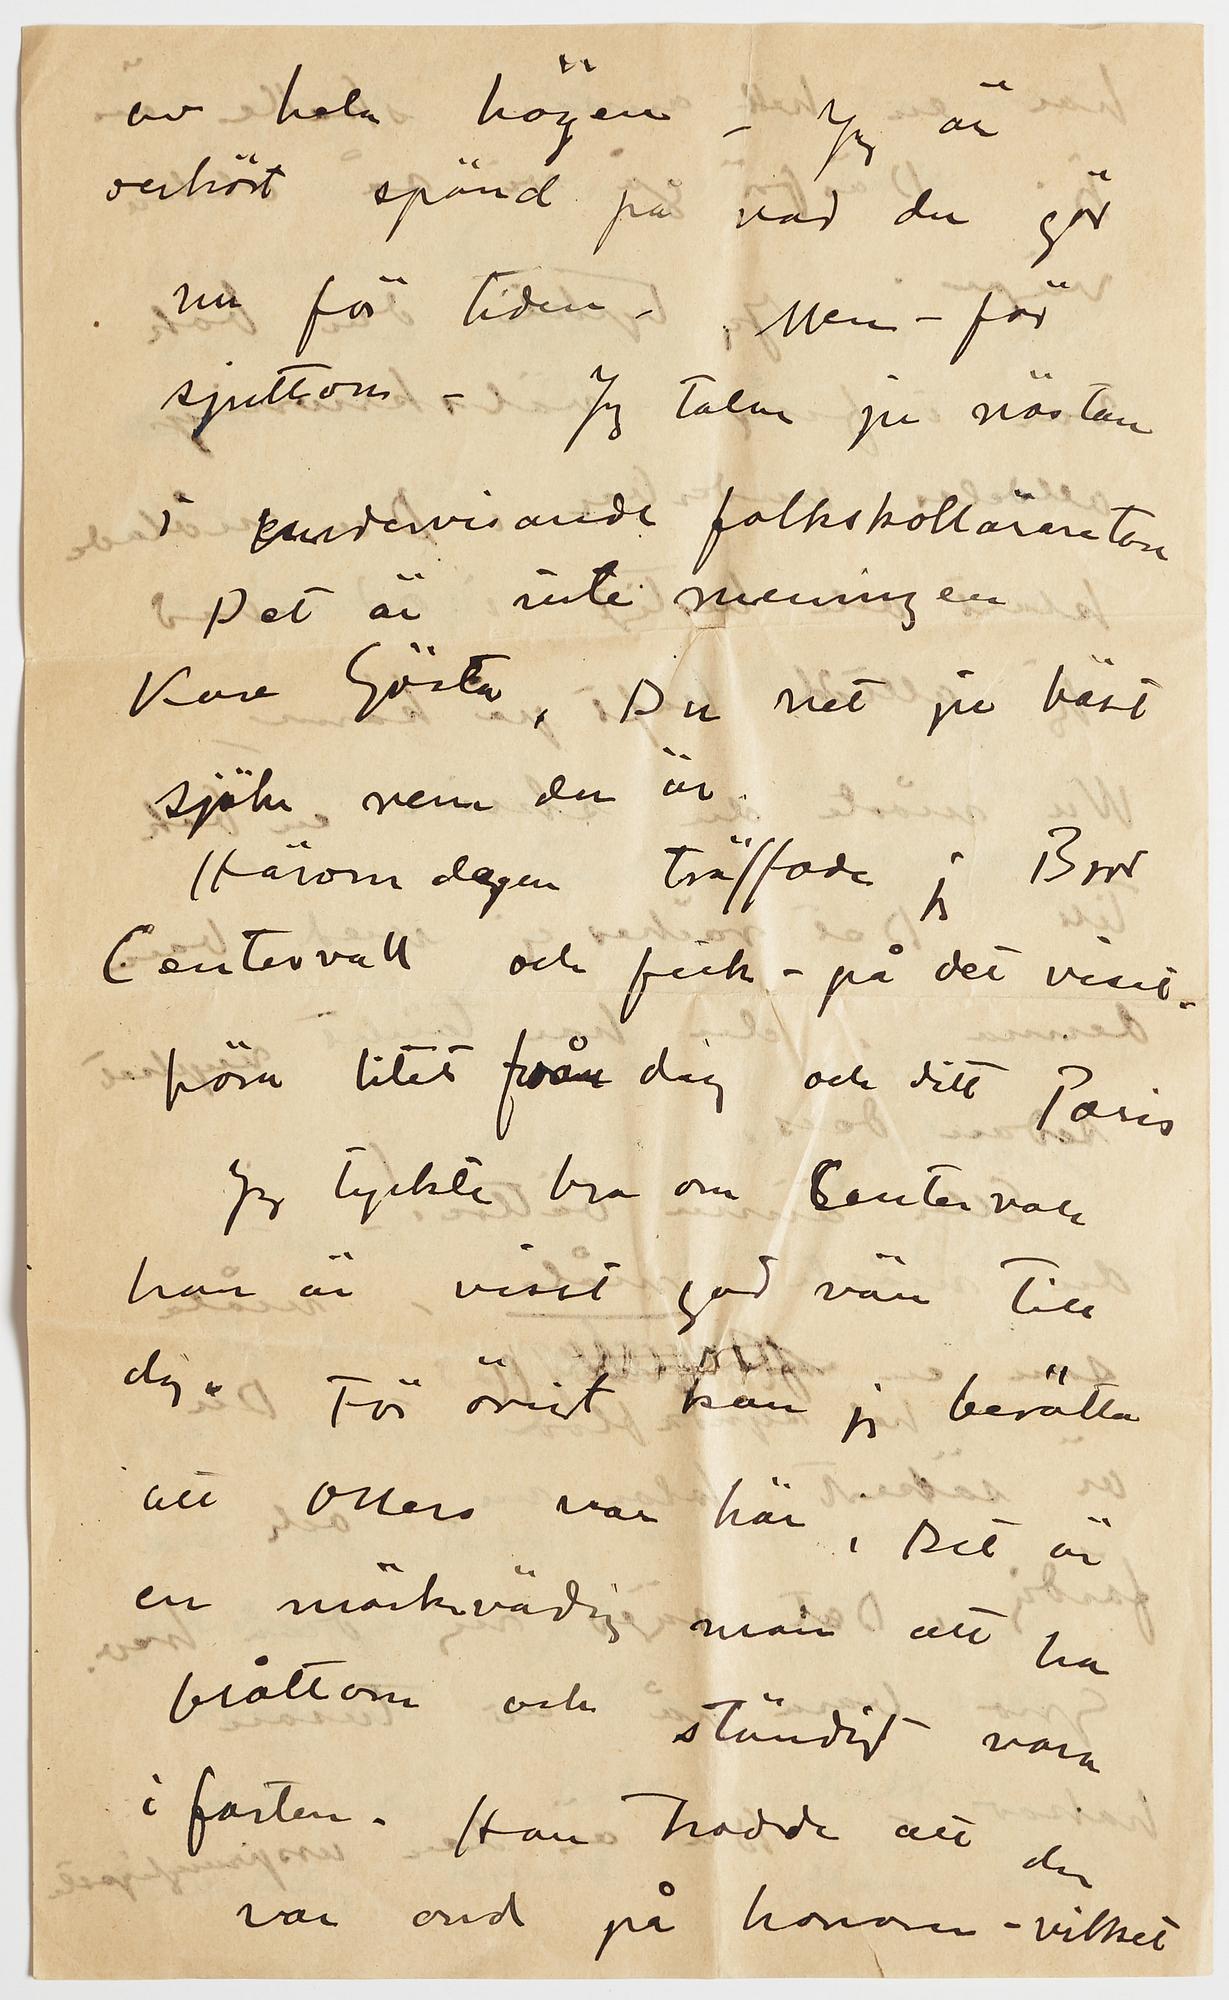 av hela högen – Jg är
oerhört spänd på vad du gör
nu för tiden – Men – för
sjuttom – Jg talar ju nästan
i undervisande folkskollärareton
Det är inte meningen
Kära Gösta, Du vet ju bäst
själv vem du är.
Häromdagen träffade jg Bror
Centervall och fick – på det viset –
höra litet från dig och ditt Paris
Jg tyckte bra om Centervall
han är visst god vän till
dig. För övrigt kan jg berätta
att Ollers var här, Det är
en märkvädig män att ha
bråttom och ständigt vara
i farten. Han trodde att du
var ond på honom – vilket